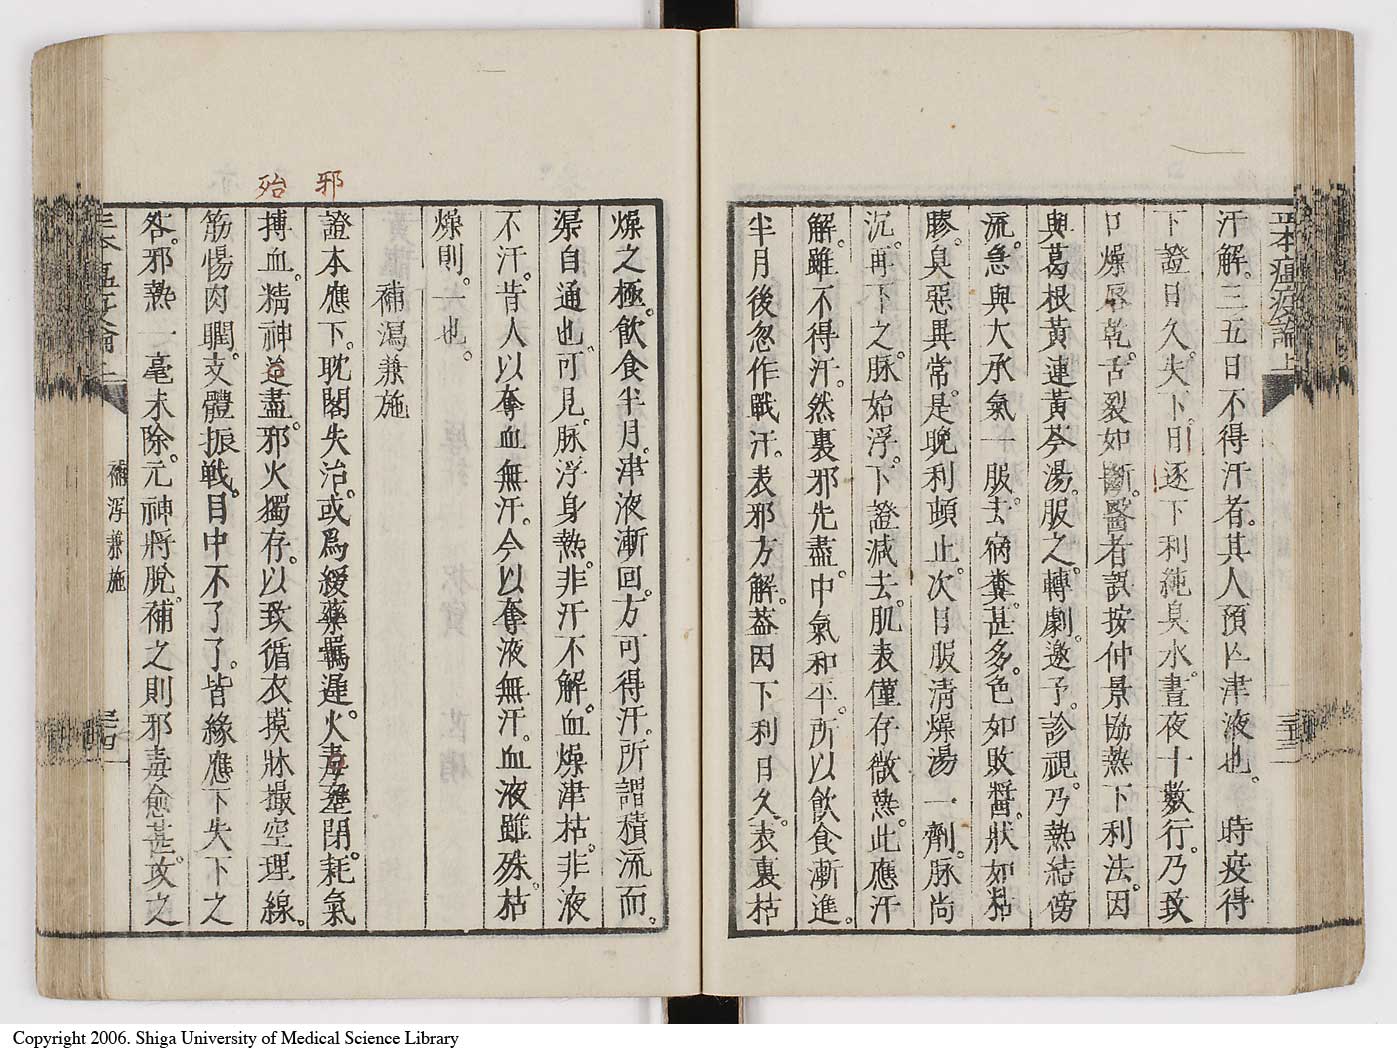 汗解。三五日不得汗者。其人預亡津液也。　時疫得
下證日久失下。日逐下利純臭水。晝夜十數行。乃致
口燥唇乾。舌裂如斷。醫者誤按仲景協熱下利法。因
與葛根黃連黃芩湯。服之轉劇。邀予診視。乃熱結傍
流。急與大承氣一服。去宿糞甚多。色如敗醬。狀如粘
膠。臭惡異常。是晚利頓止。次日服清燥湯一劑。脉尚
沉。再下之。脉始浮。下證減去。肌表僅存微熱。此應汗
解。雖不得汗。然裏邪先盡。中氣和平。所以飲食漸進。
半月後忽作戰汗。表邪方解。蓋因下利日久。表裏枯
燥之極。飲食半月。津液漸回。方可得汗。所謂積流而。
渠自通也。可見脉浮身熱。非汗不解。血燥津枯。非液
不汗。昔人以奪血無汗。今以奪液無汗。血液雖殊。枯
燥則一也。
補瀉兼施
證本應下。耽閣失治。或爲緩藥羈遲。火毒壅閉。耗氣
搏血。精神盡。邪火獨存。以致循衣摸牀。撮空理線。
筋惕肉瞤。支體振戰。目中不了了。皆緣應下失下之
咎。邪熱一毫未除。元神將脫。補之則邪毒愈甚。攻之
邪
殆
本瘟疫論上
三十三
補瀉兼施
三十四
Copyright 2006. Shiga University of Medical Science Library